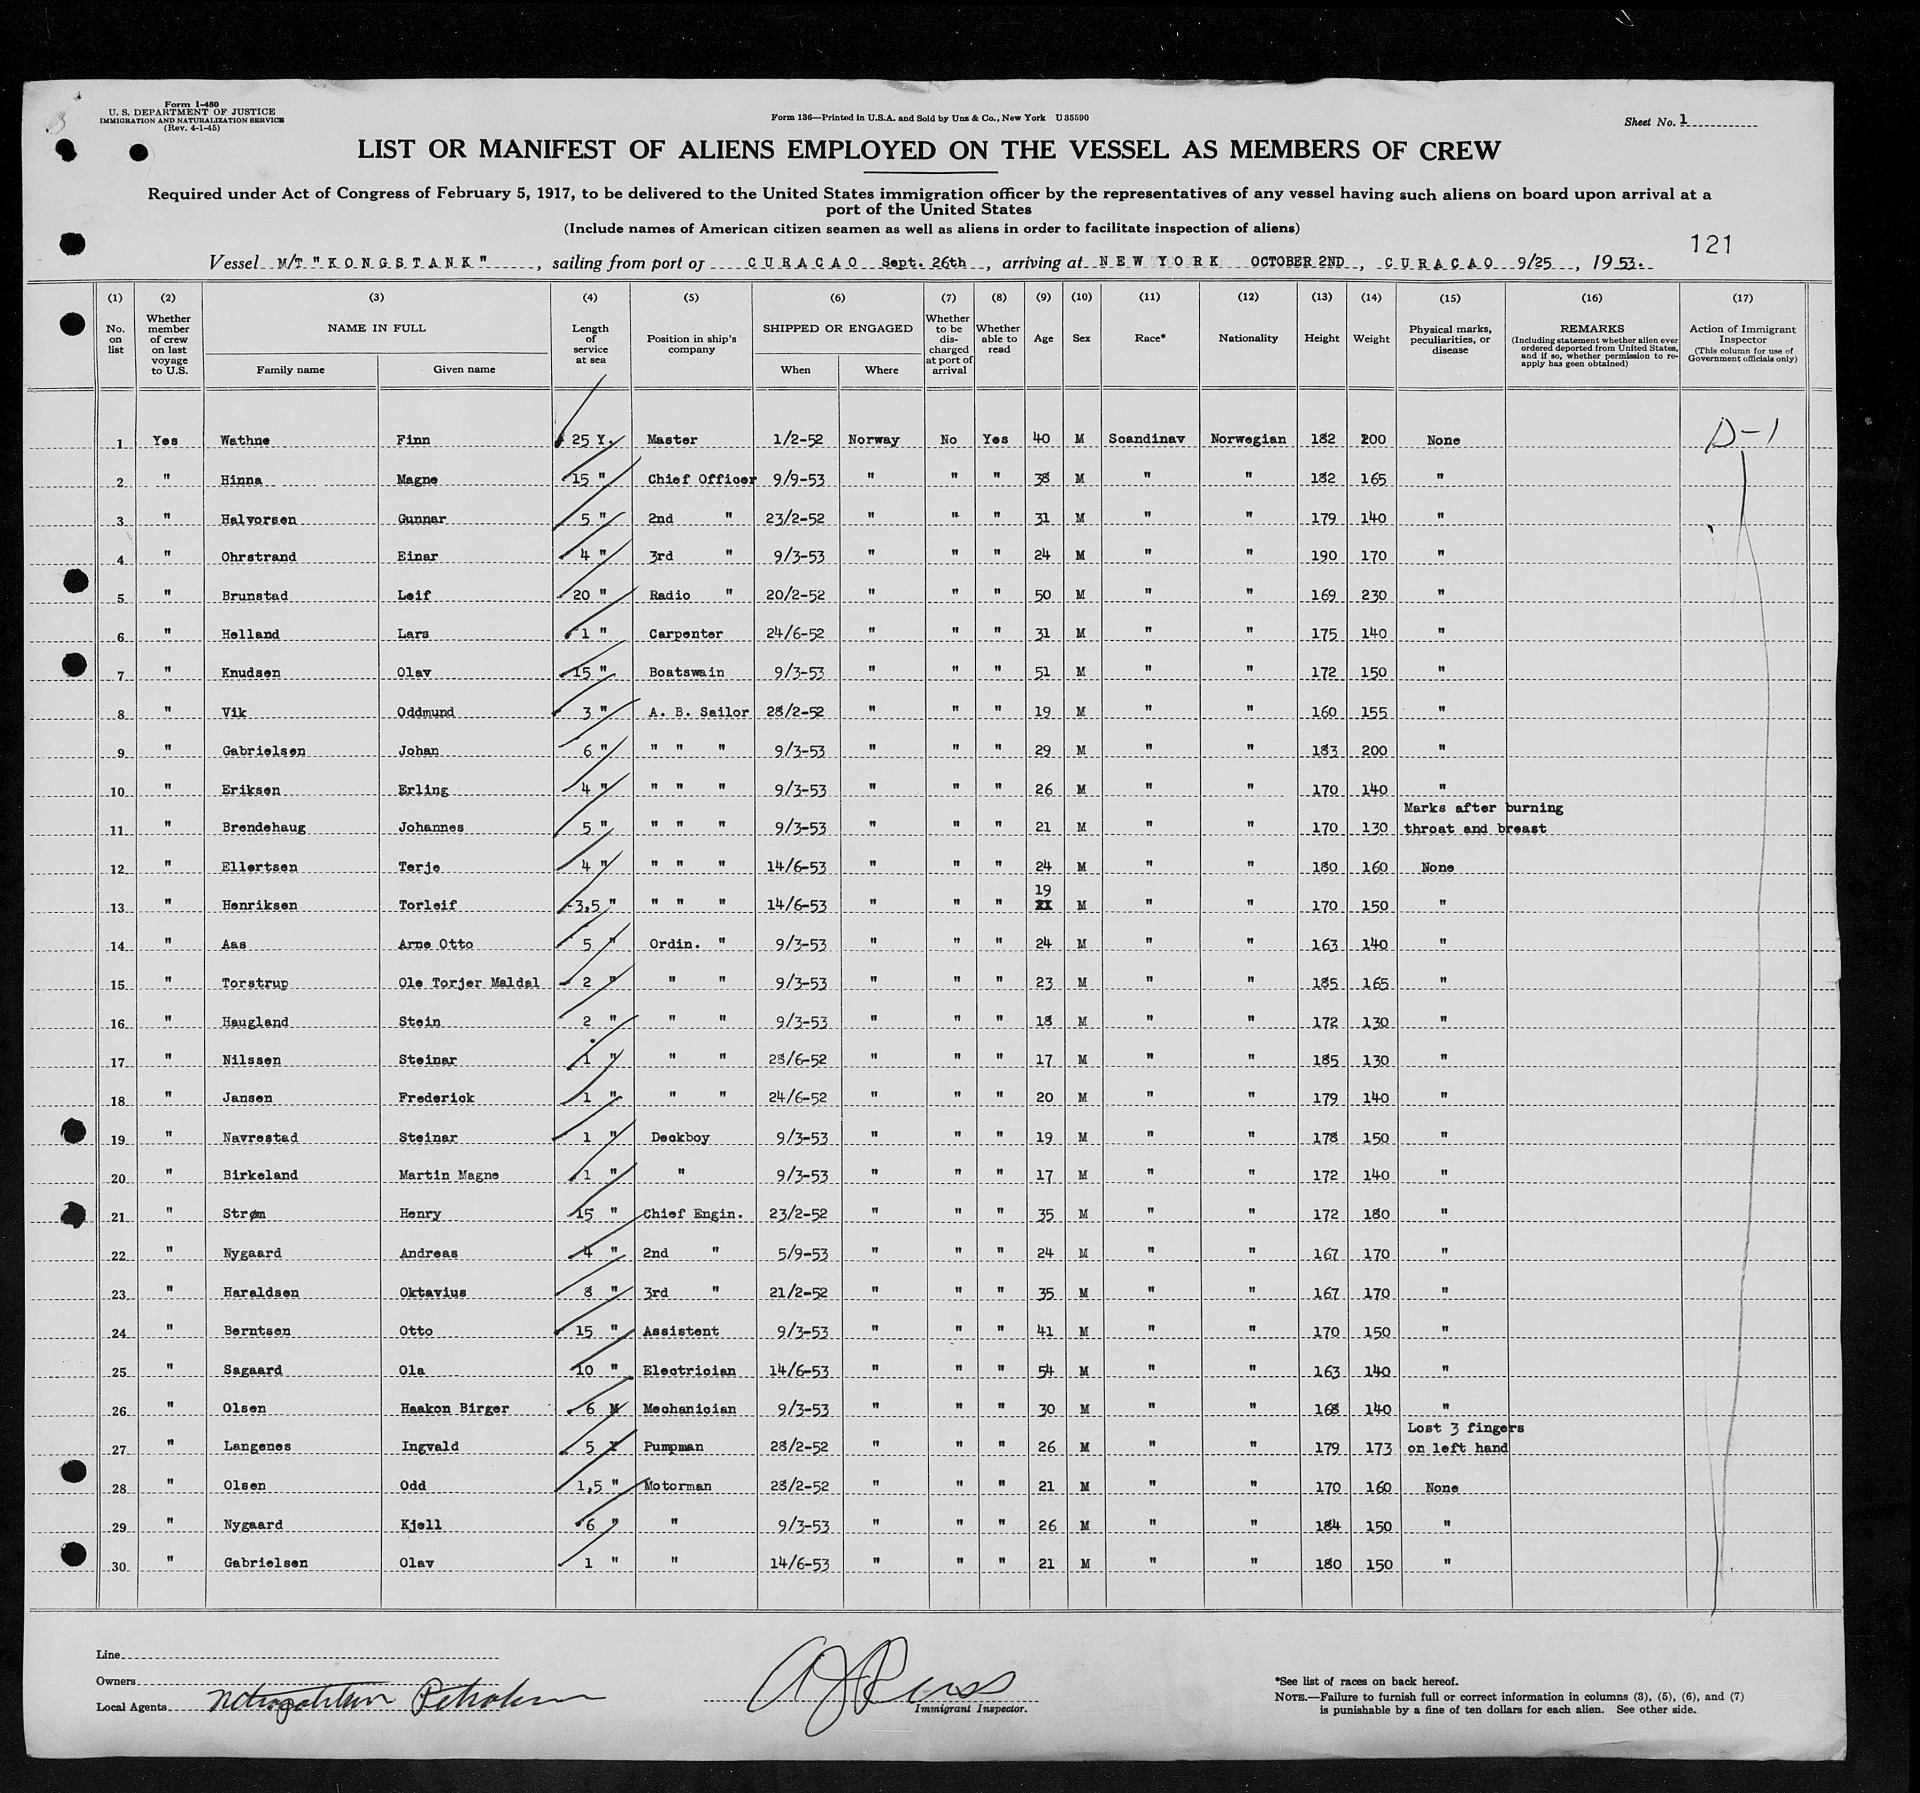 Form I-480
U. S. DEPARTMENT OF JUSTICE
IMMIGRATION AND NATURALIZATION SERVICE
(Rev. 4-1-45)
Form 136—Printed in U.S.A. and Sold by Unz & Co., New York U 35590
Sheet No. 1
LIST OR MANIFEST OF ALIENS EMPLOYED ON THE VESSEL AS MEMBERS OF CREW
Required under Act of Congress of February 5, 1917, to be delivered to the United States immigration officer by the representatives of any vessel having such aliens on board upon arrival at a
port of the United States
(Include names of American citizen seamen as well as aliens in order to facilitate inspection of aliens)
121
Vessel M/T "KONGSTANK", sailing from port of CURACAO Sept. 26th, arriving at NEW YORK OCTOBER 2ND, CURACAO 9/25, 1953.
(1) (2) (3) (4) (5) (6) (7) (8) (9) (10) (11) (12) (13) (14) (15) (16) (17)
No. on list | Whether member of crew on last voyage to U.S. | NAME IN FULL | Family name | Given name | Length of service at sea | Position in ship's company | SHIPPED OR ENGAGED | When | Where | Whether to be discharged at port of arrival | Whether able to read | Age | Sex | Race* | Nationality | Height | Weight | Physical marks, peculiarities, or disease | REMARKS (Including statement whether alien ever ordered deported from United States, and if so, whether permission to re-apply has geen obtained) | Action of Immigrant Inspector (This column for use of Government officials only)
1 Yes Wathne Finn 25 Y. Master 1/2-52 Norway No Yes 40 M Scandinav Norwegian 182 200 None D-1
2 " Hinna Magne 15 " Chief Officer 9/9-53 " " " 38 M " " 182 165 "
3 " Halvorsen Gunnar 5 " 2nd " 23/2-52 " " " 31 M " " 179 140 "
4 " Ohrstrand Einar 4 " 3rd " 9/3-53 " " " 24 M " " 190 170 "
5 " Brunstad Leif 20 " Radio " 20/2-52 " " " 50 M " " 169 230 "
6 " Helland Lars 1 " Carpenter 24/6-52 " " " 31 M " " 175 140 "
7 " Knudsen Olav 15 " Boatswain 9/3-53 " " " 51 M " " 172 150 "
8 " Vik Oddmund 3 " A. B. Sailor 28/2-52 " " " 19 M " " 160 155 "
9 " Gabrielsen Johan 6 " " " " 9/3-53 " " " 29 M " " 183 200 "
10 " Eriksen Erling 4 " " " " 9/3-53 " " " 26 M " " 170 140 "
11 " Brendehaug Johannes 5 " " " " 9/3-53 " " " 21 M " " 170 130 Marks after burning throat and breast
12 " Ellertsen Terje 4 " " " " 14/6-53 " " " 24 M " " 180 160 None
13 " Henriksen Torleif 3,5 " " " " 14/6-53 " " " 19 M " " 170 150 "
14 " Aas Arne Otto 5 " Ordin. " 9/3-53 " " " 24 M " " 163 140 "
15 " Torstrup Ole Torjer Maldal 2 " " " 9/3-53 " " " 23 M " " 185 165 "
16 " Haugland Stein 2 " " " 9/3-53 " " " 18 M " " 172 130 "
17 " Nilssen Steinar 1 " " " 28/6-52 " " " 17 M " " 185 130 "
18 " Jansen Frederick 1 " " " 24/6-52 " " " 20 M " " 179 140 "
19 " Navrestad Steinar 1 " Deckboy 9/3-53 " " " 19 M " " 178 150 "
20 " Birkeland Martin Magne 1 " " 9/3-53 " " " 17 M " " 172 140 "
21 " Strøm Henry 15 " Chief Engin. 23/2-52 " " " 35 M " " 172 180 "
22 " Nygaard Andreas 4 " 2nd " 5/9-53 " " " 24 M " " 167 170 "
23 " Haraldsen Oktavius 8 " 3rd " 21/2-52 " " " 35 M " " 167 170 "
24 " Berntsen Otto 15 " Assistent 9/3-53 " " " 41 M " " 170 150 "
25 " Sagaard Ola 10 " Electrician 14/6-53 " " " 54 M " " 163 140 "
26 " Olsen Haakon Birger 6 M Mechanician 9/3-53 " " " 30 M " " 168 140 "
27 " Langenes Ingvald 5 Y Pumpman 28/2-52 " " " 26 M " " 179 173 Lost 3 fingers on left hand
28 " Olsen Odd 1,5 " Motorman 28/2-52 " " " 21 M " " 170 160 None
29 " Nygaard Kjell 6 " " 9/3-53 " " " 26 M " " 184 150 "
30 " Gabrielsen Olav 1 " " 14/6-53 " " " 21 M " " 180 150 "
Line
Owners
Local Agents Metropolitan Petroleum
Immigrant Inspector.
*See list of races on back hereof.
NOTE.—Failure to furnish full or correct information in columns (3), (5), (6), and (7)
is punishable by a fine of ten dollars for each alien. See other side.